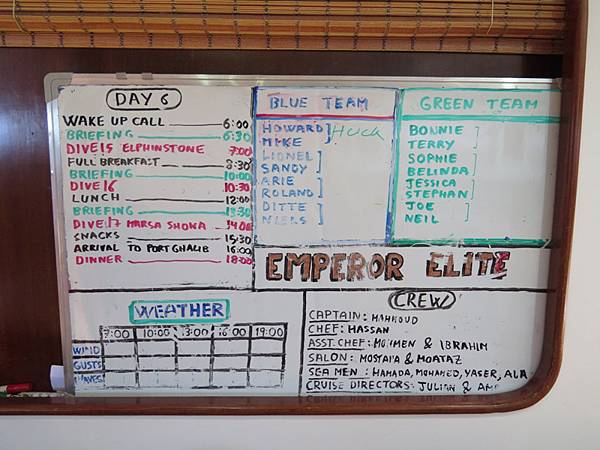 DAY 6
WAKE UP CALL 6:00
BRIEFING 6:30
DIVE 15 ELPHINSTONE 7:00
FULL BREAKFAST 8:30
BRIEFING 10:00
DIVE 16 10:30
LUNCH 12:00
BRIEFING 13:30
DIVE 17 MARSA SHONA 14:00
SNACKS 15:30
ARRIVAL TO PORT GHALIB 16:00
DINNER 18:00
BLUE TEAM
HOWARD HUCK
MIKE
LIONEL
SANDY
ARIE
ROLAND
DITTE
NIELS
GREEN TEAM
BONNIE
TERRY
SOPHIE
BELINDA
JESSICA
STEPHAN
JOE
NEIL
EMPEROR ELITE
WEATHER
7:00 10:00 13:00 16:00 19:00
WIND
GUSTS
WAVES
CREW
CAPTAIN: MAHMOUD
CHEF: HASSAN
ASST. CHEF: & IBRAHIM
SALON: & MOATAZ
SEA MEN: HAMADA, MOHAMED, YASER, ALA
CRUISE DIRECTORS: JULIAN &